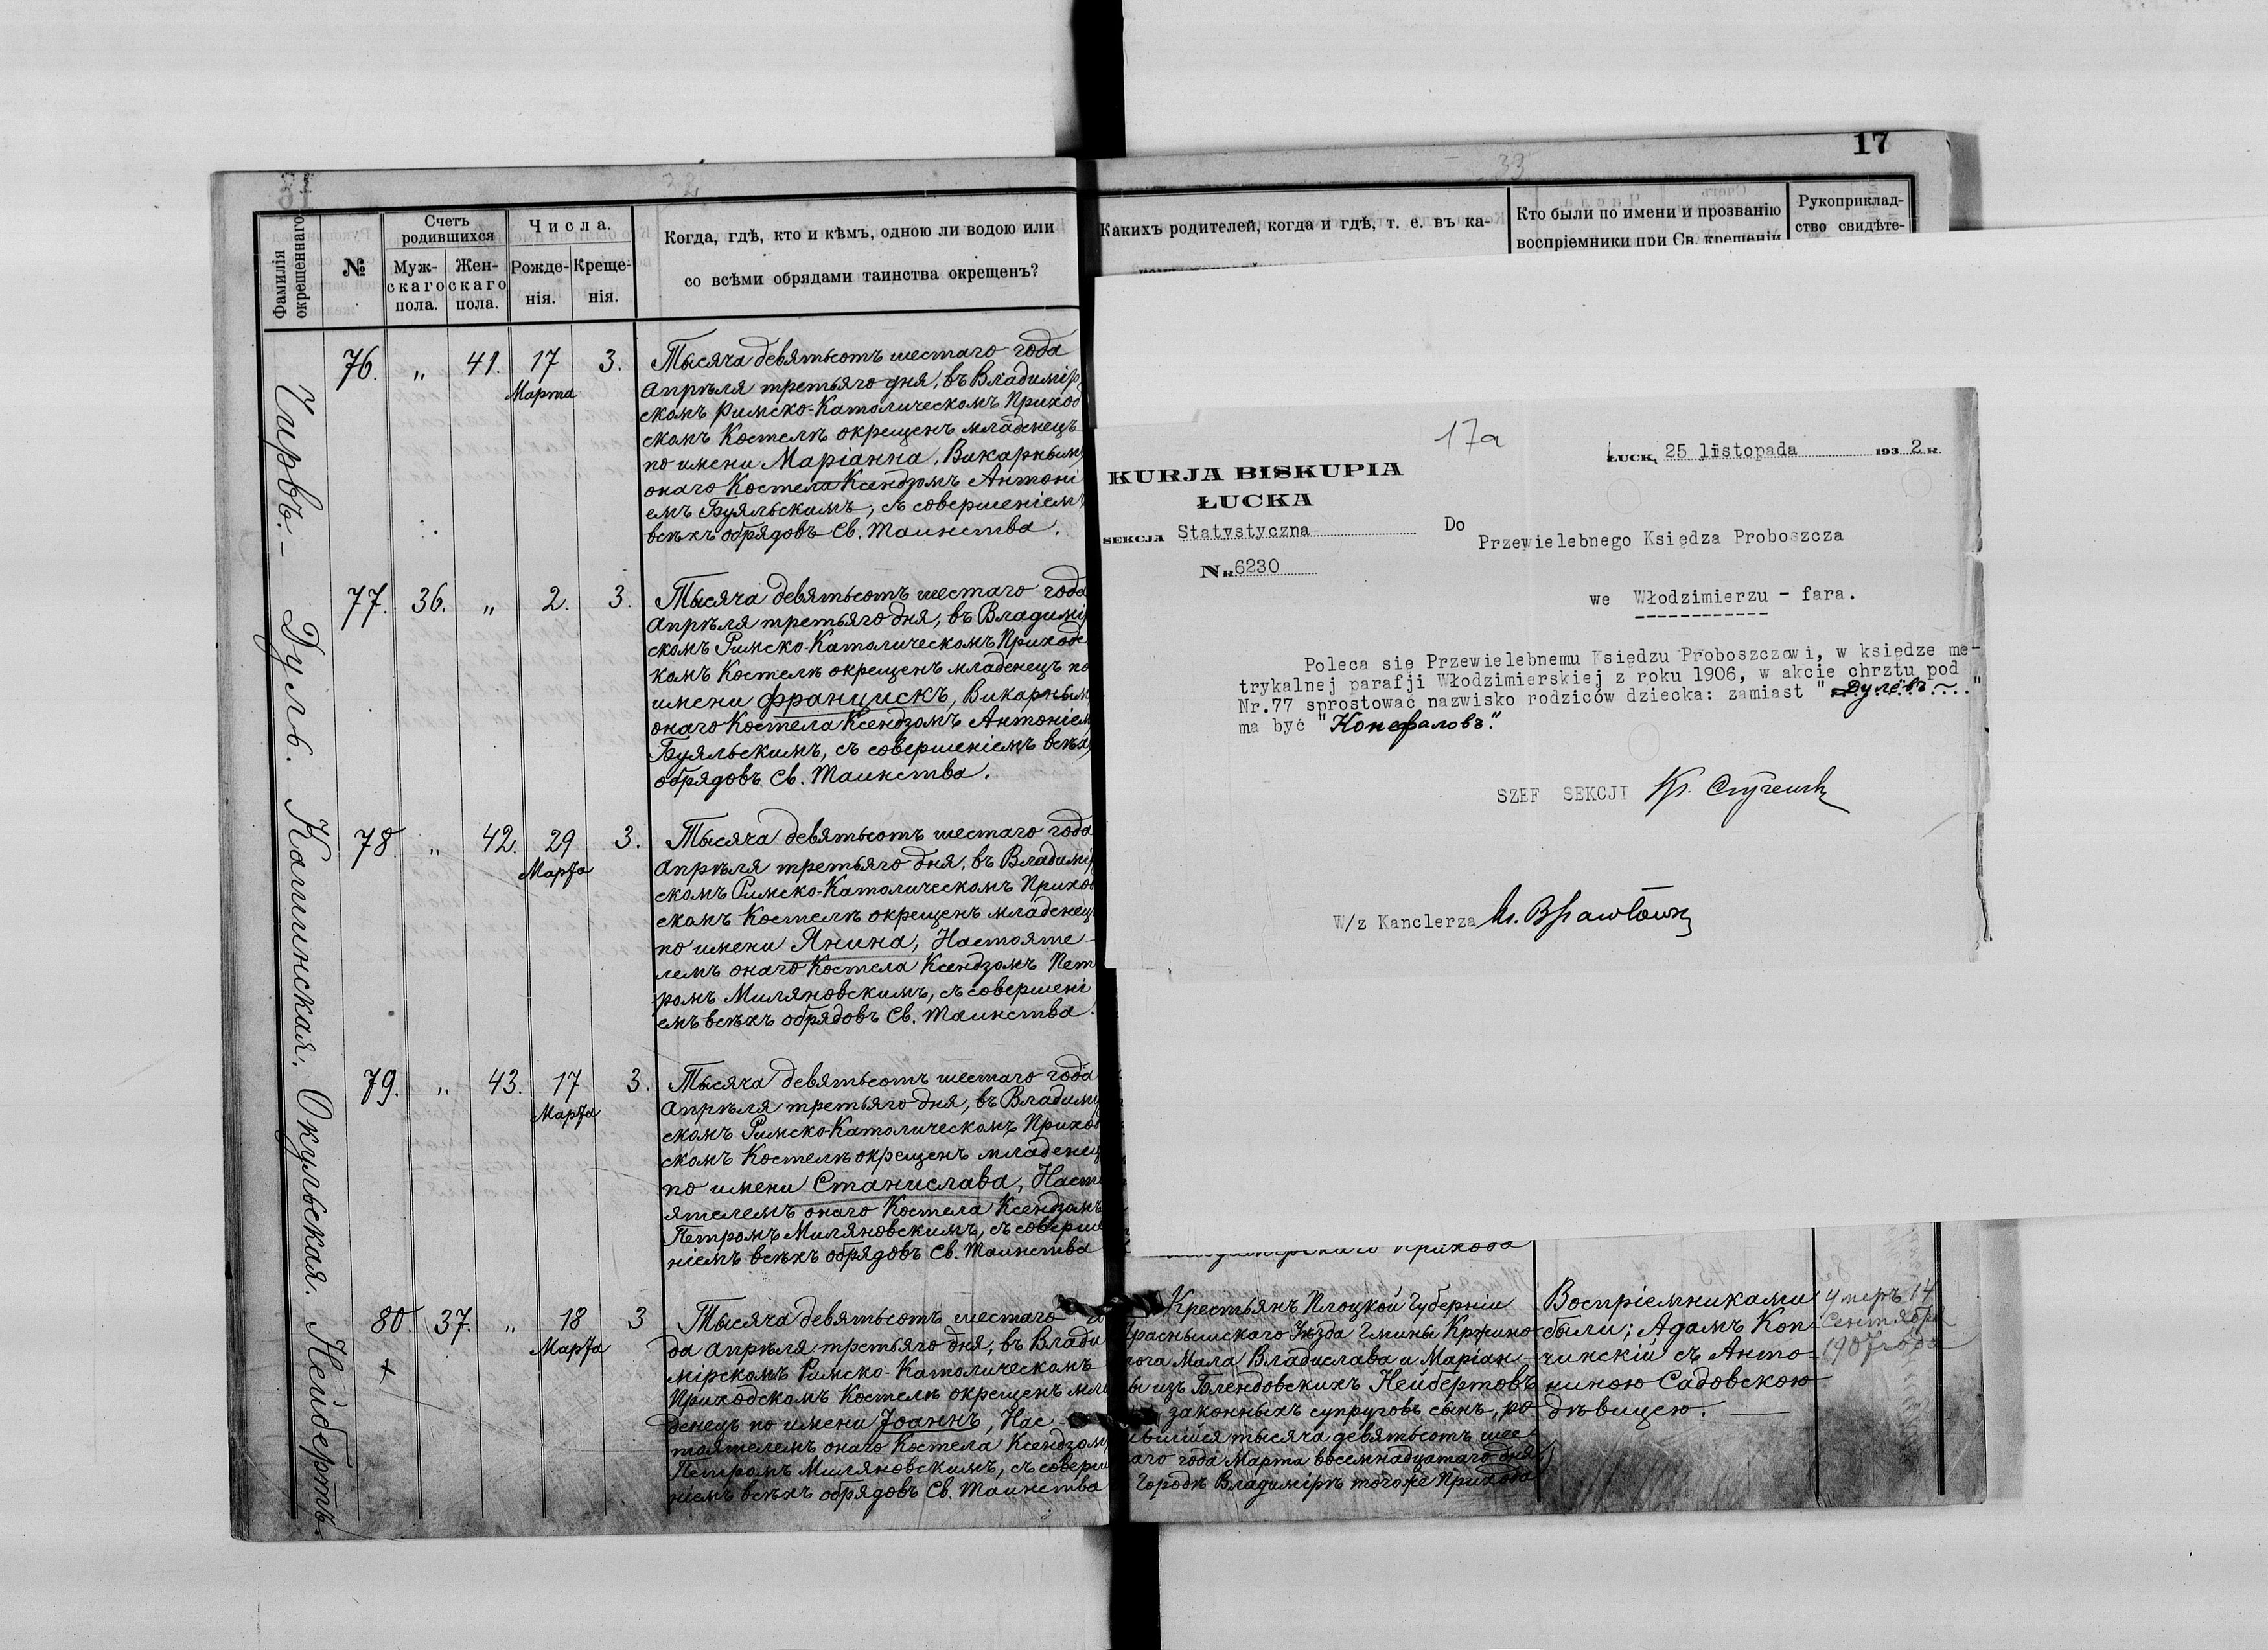 17
32
33
Фамилія окрещеннаго
№
Счетъ родившихся
Муж-
скаго
пола.
Жен-
скаго
пола.
Числа.
Рожде-
нія.
Креще-
нія.
Когда, гдѣ, кто и кѣмъ, одною ли водою или
со всѣми обрядами таинства окрещенъ?
Какихъ родителей, когда и гдѣ, т. е. въ ка-
Кто были по имени и прозванію
воспріемники при Св. крещеніи
Рукоприклад-
ство свидѣте-
76. " 41. 17 Марта 3.
Тысяча девятьсотъ шестаго года
Апрѣля третьяго дня, въ Владимір
скомъ Римско-Католическомъ Приход
скомъ Костелѣ окрещенъ младенецъ
по имени Маріанна, Викарнымъ
онаго Костела Ксендзомъ Антоні
емъ Буяльскимъ, съ совершеніемъ
всѣхъ обрядовъ Св. Таинства.
Дуль.
77. 36. " 2. 3.
Тысяча девятьсотъ шестаго года
Апрѣля третьяго дня, въ Владимі
скомъ Римско-Католическомъ Приходс
комъ Костелѣ окрещенъ младенецъ по
имени Францискъ, Викарным
онаго Костела Ксендзомъ Антоніем
Буяльскимъ, съ совершеніемъ всѣх
обрядовъ Св. Таинства.
78. " 42. 29 Марта 3.
Тысяча девятьсотъ шестаго года
Апрѣля третьяго дня, въ Владимі
скомъ Римско-Католическомъ Приход
скомъ Костелѣ окрещенъ младенец
по имени Янина, Настояте-
лемъ онаго Костела Ксендзомъ Пет
ромъ Миляновскимъ, съ совершені
емъ всѣхъ обрядовъ Св. Таинства.
Окульская.
79. " 43. 17 Марта 3.
Тысяча девятьсотъ шестаго года
Апрѣля третьяго дня, въ Владимі
скомъ Римско-Католическомъ Приход
скомъ Костелѣ окрещенъ младенец
по имени Станислава, Насто
ятелемъ онаго Костела Ксендзомъ
Петромъ Миляновскимъ, съ соверше
ніемъ всѣхъ обрядовъ Св. Таинства
Нейбертъ.
80. 37. " 18 Марта 3
Тысяча девятьсотъ шестаго го
да Апрѣля третьяго дня, въ Влади
мірскомъ Римско-Католическомъ
Приходскомъ Костелѣ окрещенъ мла
денецъ по имени Іоаннъ, Нас-
тоятелемъ онаго Костела Ксендзом
Петромъ Миляновскимъ, съ соверше
ніемъ всѣхъ обрядовъ Св. Таинства
Прихода
Крестьянъ Плоцкой Губерніи
Праснышскаго Уѣзда Гмины Кржино
Мала Владислава и Маріан-
ы изъ Блендовскихъ Нейбертовъ
законныхъ супруговъ сынъ, ро
ившійся тысяча девятьсотъ шес-
аго года Марта восемнадцатаго дня
Городѣ Владимірѣ тогоже Прихода
Воспріемниками
были; Адамъ Коп
чинскій съ Анто-
ниною Садовскою
дѣвицею.
Умеръ 14
Сентября
1907 года
17a
ŁUCK, 25 listopada 1932 R.
KURJA BISKUPIA
ŁUCKA
SEKCJA Statystyczna
NR 6230
Do
Przewielebnego Księdza Proboszcza
we Włodzimierzu - fara.
Poleca się Przewielebnemu Księdzu Proboszczowi, w księdze me-
trykalnej parafji Włodzimierskiej z roku 1906, w akcie chrztu pod
Nr.77 sprostować nazwisko rodziców dziecka: zamiast "Дулёвъ...."
ma być "Конефаловъ."
SZEF SEKCJI
W/z Kanclerza